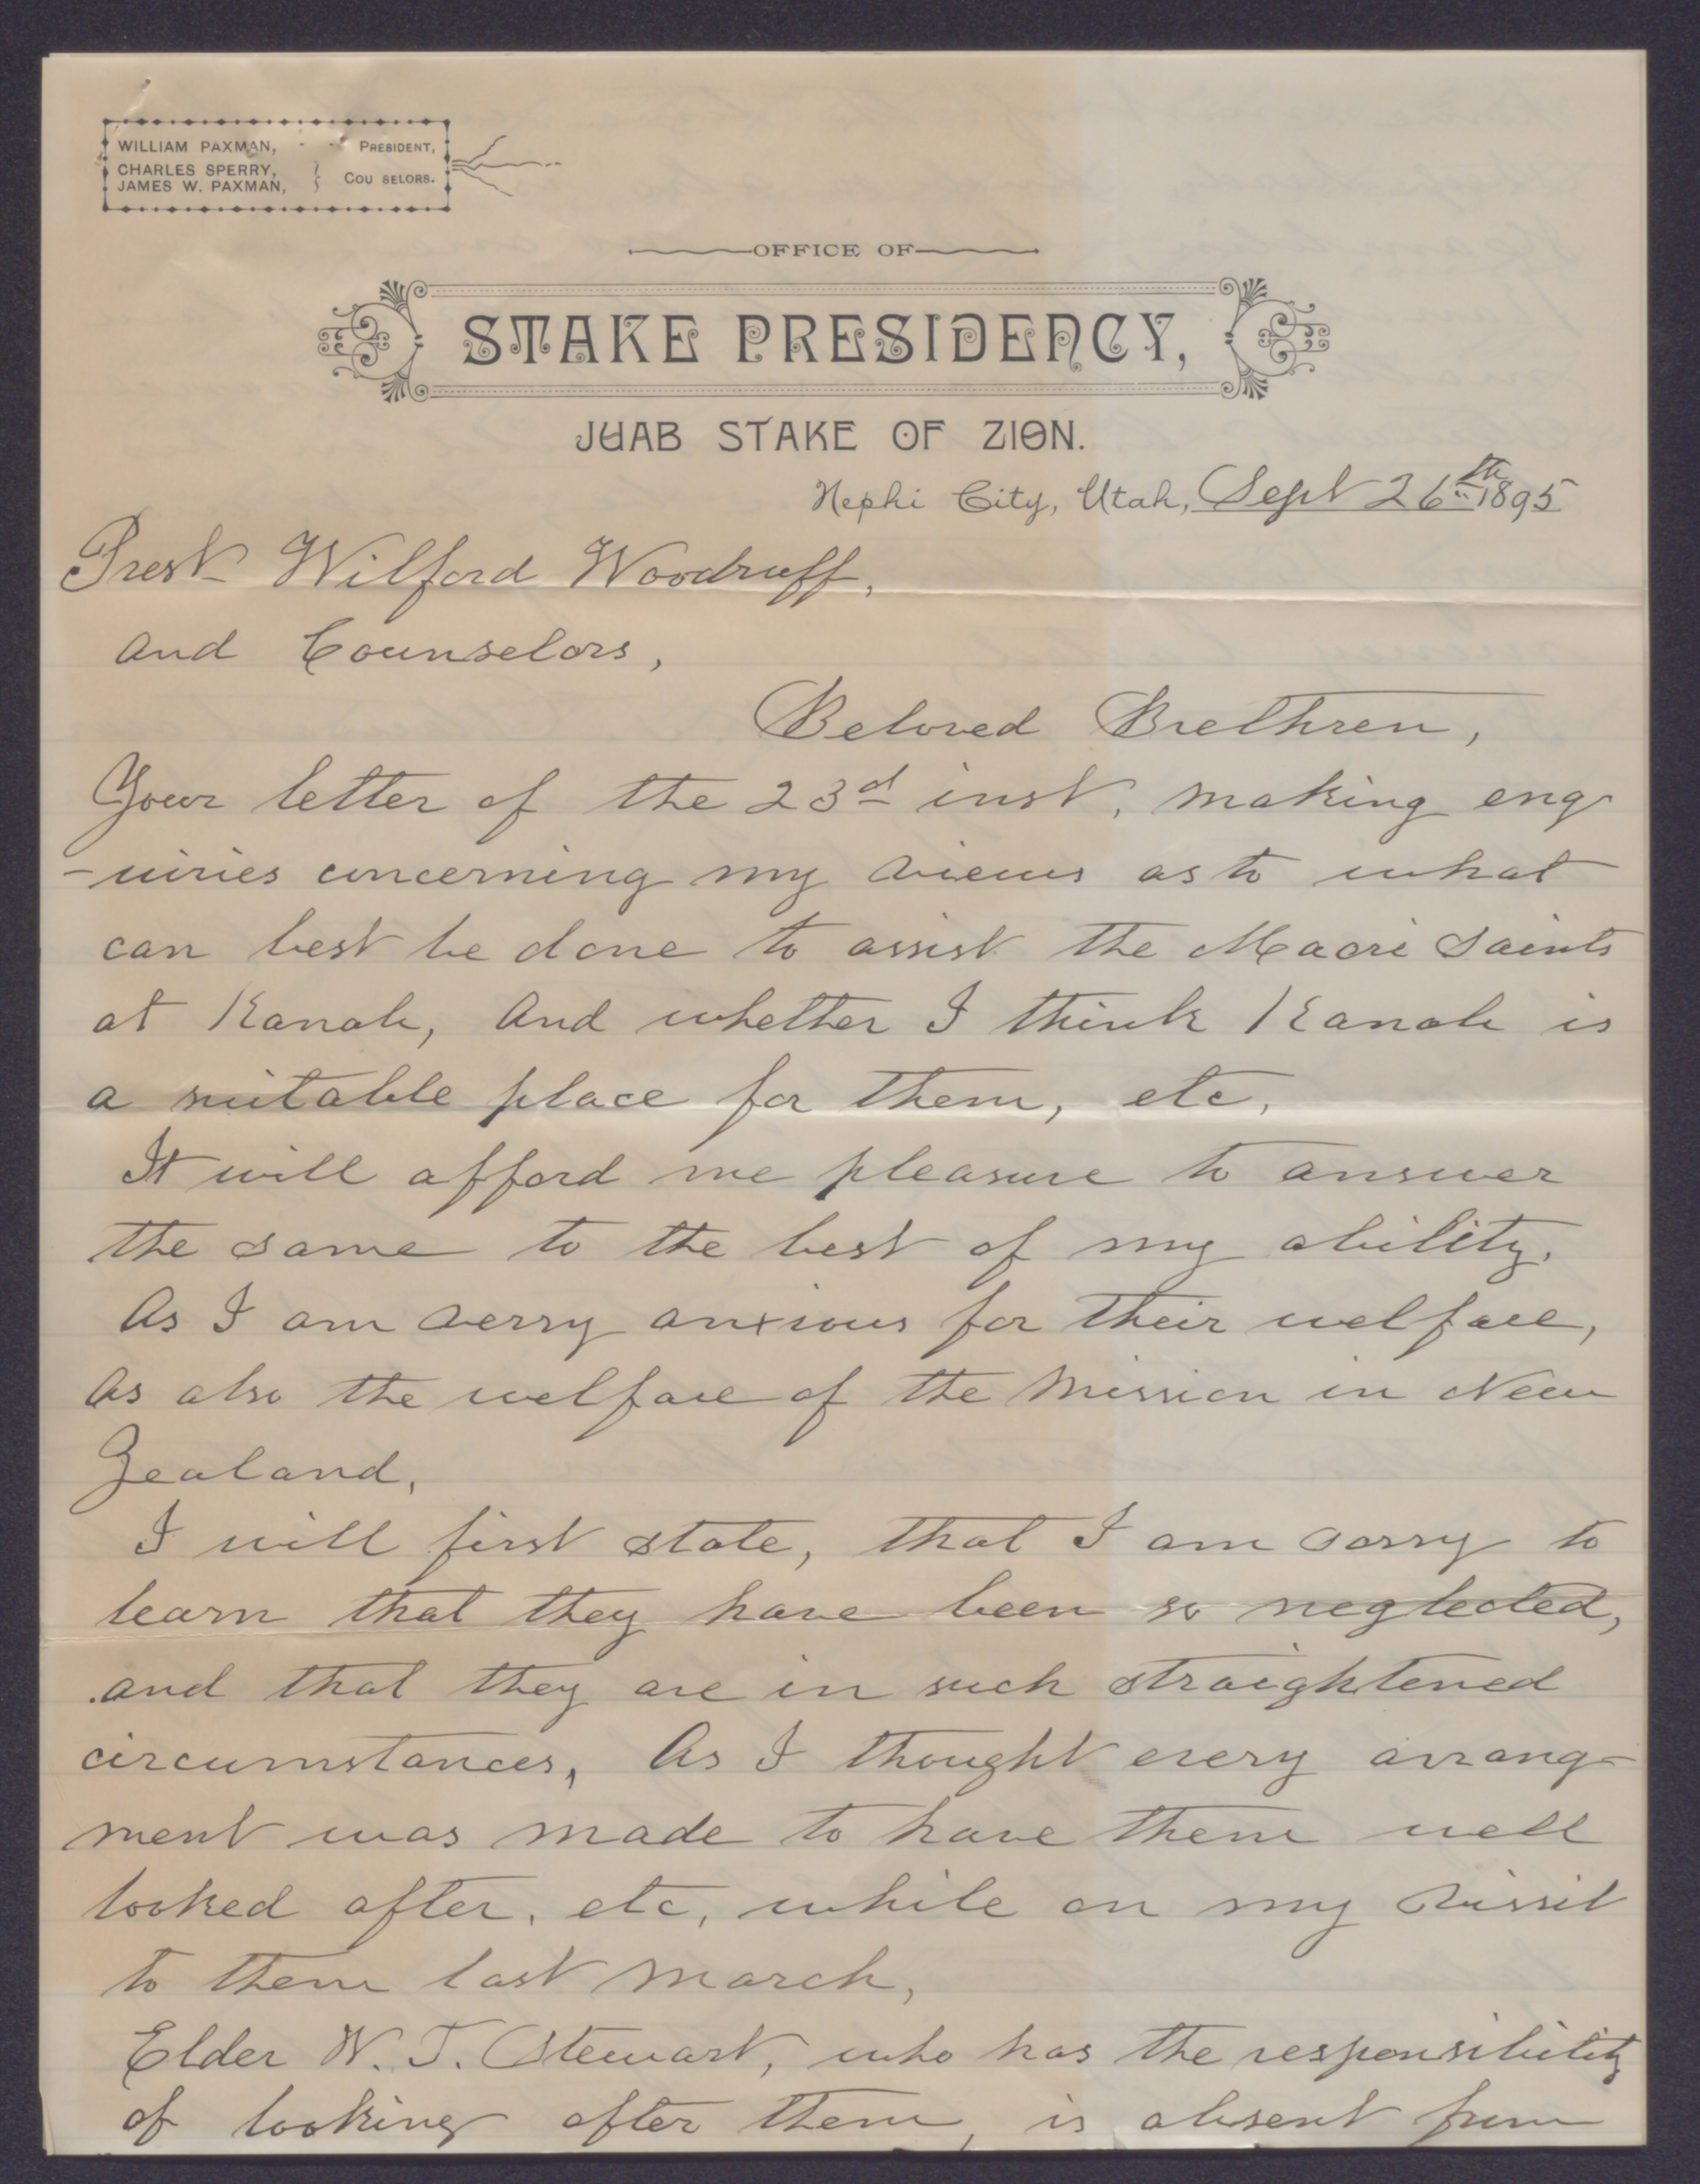 WILLIAM PAXMAN, - - PRESIDENT,
CHARLES SPERRY,
JAMES W. PAXMAN, } COU SELORS.
OFFICE OF
STAKE PRESIDENCY,
JUAB STAKE OF ZION.
Nephi City, Utah, Sept 26th 1895
Prest Wilford Woodruff,
and Counselors,
Beloved Brethren,
Your letter of the 23d inst, making enq
-uiries concerning my views as to what
can best be done to assist the Maori Saints
at Kanab, And whether I think Kanab is
a suitable place for them, etc,
It will afford me pleasure to answer
the same to the best of my ability.
As I am verry anxious for their welfare,
As also the welfare of the Mission in New
Zealand,
I will first state, that I am sorry to
learn that they have been so neglected,
and that they are in such straightened
circumstances, As I thought every arrang-
ment was made to have them well
looked after, etc, while on my vissit
to them last March,
Elder W. T. Stewart, who has the responsibility
of looking after them, is absent from